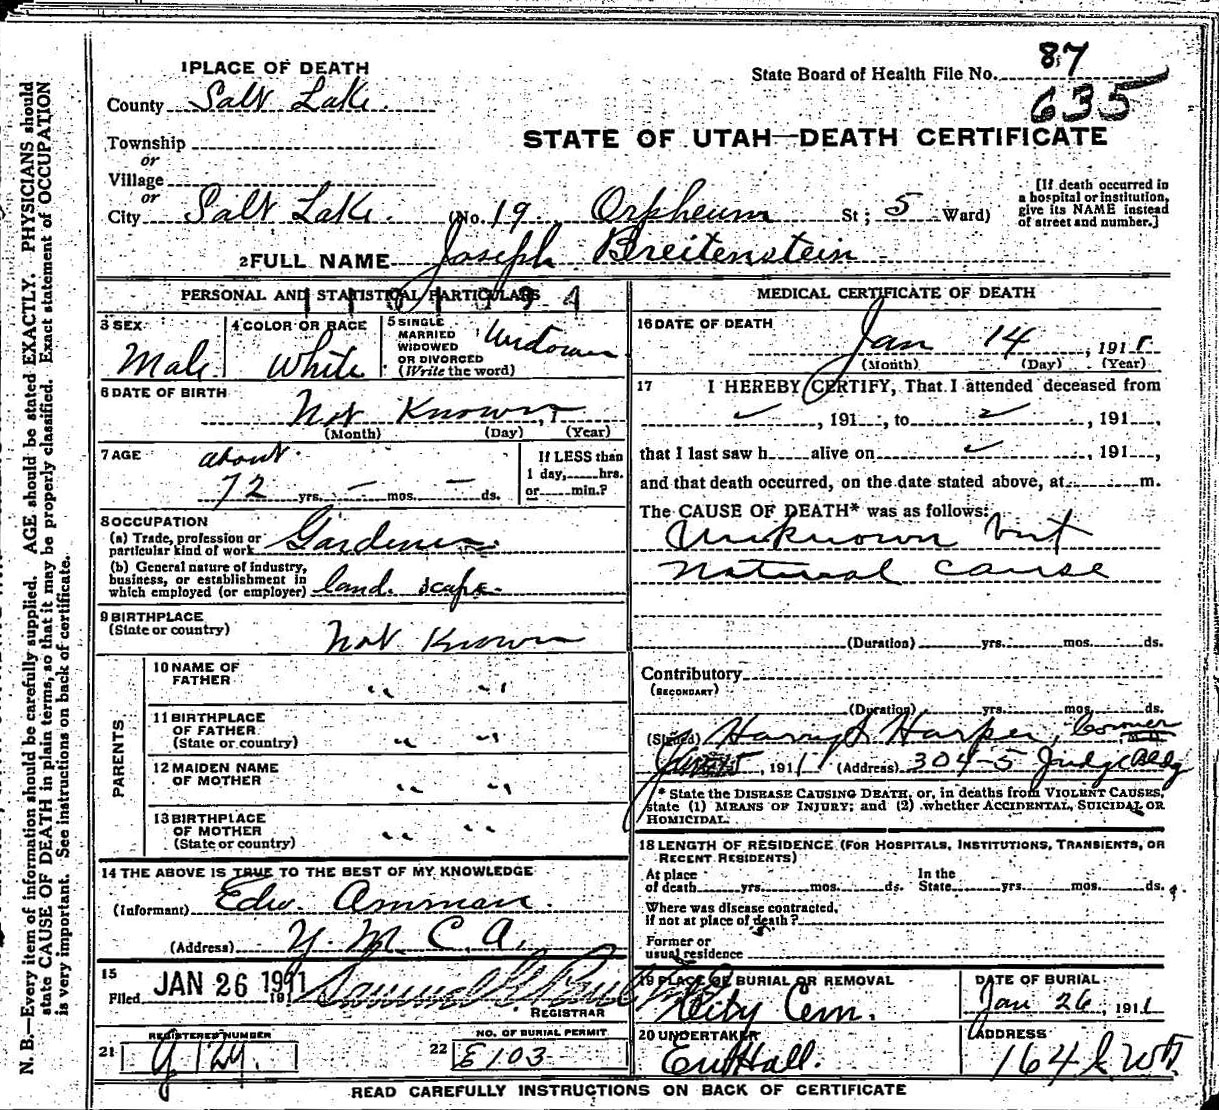 1 PLACE OF DEATH
County Salt Lake
Township
or
Village
or
City Salt Lake (No. 19 Orpheum St ; 5 Ward)
State Board of Health File No. 87
635
STATE OF UTAH—DEATH CERTIFICATE
[If death occurred in
a hospital or institution,
give its NAME instead
of street and number.]
2 FULL NAME Joseph Breitenstein
PERSONAL AND STATISTICAL PARTICULARS
3 SEX
Male
4 COLOR OR RACE
White
5 SINGLE
MARRIED
WIDOWED
OR DIVORCED
(Write the word)
6 DATE OF BIRTH
Not Known
(Month) (Day) (Year)
7 AGE
about
72 yrs. — mos. — ds.
If LESS than
1 day, hrs.
or min.?
8 OCCUPATION
(a) Trade, profession or
particular kind of work Gardener
(b) General nature of industry,
business, or establishment in
which employed (or employer) land scape
9 BIRTHPLACE
(State or country)
Not Known
PARENTS
10 NAME OF
FATHER " "
11 BIRTHPLACE
OF FATHER
(State or country) " "
12 MAIDEN NAME
OF MOTHER " "
13 BIRTHPLACE
OF MOTHER
(State or country) " "
14 THE ABOVE IS TRUE TO THE BEST OF MY KNOWLEDGE
(Informant) Edw. Amman
(Address) Y. M. C. A.
15
Filed JAN 26 1911 191
REGISTRAR
REGISTERED NUMBER
21
NO. OF BURIAL PERMIT
22 E 103
MEDICAL CERTIFICATE OF DEATH
16 DATE OF DEATH
Jan 14, 1911
(Month) (Day) (Year)
17 I HEREBY CERTIFY, That I attended deceased from
, 191 , to , 191 ,
that I last saw h alive on , 191 ,
and that death occurred, on the date stated above, at m.
The CAUSE OF DEATH* was as follows:
Unknown but
natural cause
(Duration) yrs. mos. ds.
Contributory
(SECONDARY)
(Duration) yrs. mos. ds.
(Signed) Harry S Harper, Coroner M.D.
, 1911 (Address) 304-5 Judge Bldg
* State the DISEASE CAUSING DEATH, or, in deaths from VIOLENT CAUSES,
state (1) MEANS OF INJURY; and (2) whether ACCIDENTAL, SUICIDAL OR
HOMICIDAL.
18 LENGTH OF RESIDENCE (FOR HOSPITALS, INSTITUTIONS, TRANSIENTS, OR
RECENT RESIDENTS)
At place
of death yrs. mos. ds.
In the
State yrs. mos. ds.
Where was disease contracted,
if not at place of death?
Former or
usual residence
19 PLACE OF BURIAL OR REMOVAL
City Cem.
DATE OF BURIAL
Jan 26, 1911
20 UNDERTAKER
ADDRESS
READ CAREFULLY INSTRUCTIONS ON BACK OF CERTIFICATE
N. B.—Every item of information should be carefully supplied. AGE should be stated EXACTLY. PHYSICIANS should
state CAUSE OF DEATH in plain terms, so that it may be properly classified. Exact statement of OCCUPATION
is very important. See instructions on back of certificate.